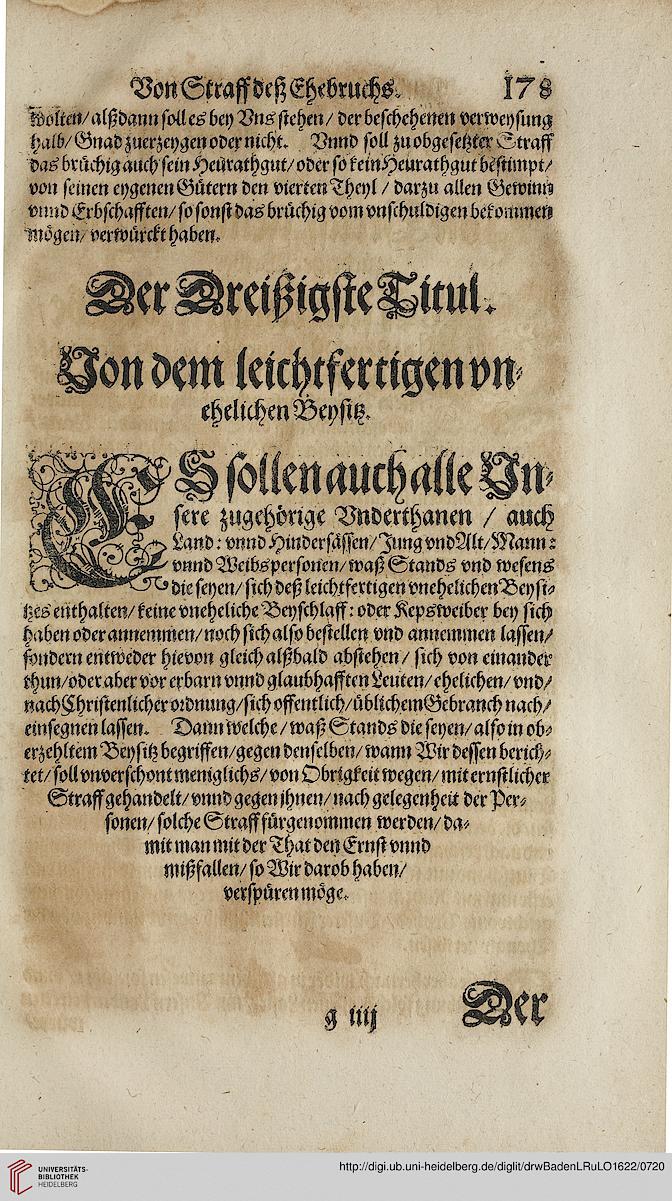 Von Straff deß Ehebruchs. 178
wolten/ alß dann soll es bey Vns stehen/ der beschehenen verweysung
halb/ Gnad zuerzeygen oder nicht. Vnnd soll zu obgesetzter Straff
das brüchig auch sein Heürathgut/ oder so kein Heurathgut bestimpt/
von seinen eygenen Gütern den vierten Theyl / darzu allen Gewinn
vnnd Erbschafften/ so sonst das brüchig vom vnschuldigen bekommen
mögen/ verwürckt haben.
Der Dreißigste Titul.
Von dem leichtfertigen vn⸗
ehelichen Beysitz.
ES sollen auch alle Vn⸗
sere zugehörige Vnderthanen / auch
Land: vnnd Hindersässen/ Jung vnd Alt/ Mann:
vnnd Weibspersonen/ waß Stands vnd wesens
die seyen/ sich deß leichtfertigen vnehelichen Beysi⸗
tzes enthalten/ keine vneheliche Beyschlaff: oder Kepsweiber bey sich
haben oder annemmen/ noch sich also bestellen vnd annemmen lassen/
sondern entweder hievon gleich alßbald abstehen / sich von einander
thun/ oder aber vor erbarn vnnd glaubhafften Leuten/ ehelichen/ vnd/
nach Christenlicher ordnung/ sich offentlich/ üblichem Gebrauch nach/
einsegnen lassen. Dann welche / waß Stands die seyen/ also in ob⸗
erzehltem Beysitz begriffen/ gegen denselben/ wann Wir dessen berich⸗
tet/ soll vnverschont meniglichs/ von Obrigkeit wegen/ mit ernstlicher
Straff gehandelt/ vnnd gegen jhnen/ nach gelegenheit der Per⸗
sonen/ solche Straff fürgenommen werden/ da⸗
mit man mit der That den Ernst vnnd
mißfallen/ so Wir darob haben/
verspüren möge.
g iiij Der
UNIVERSITÄTS-
BIBLIOTHEK
HEIDELBERG
http://digi.ub.uni-heidelberg.de/diglit/drwBadenLRuLO1622/0720